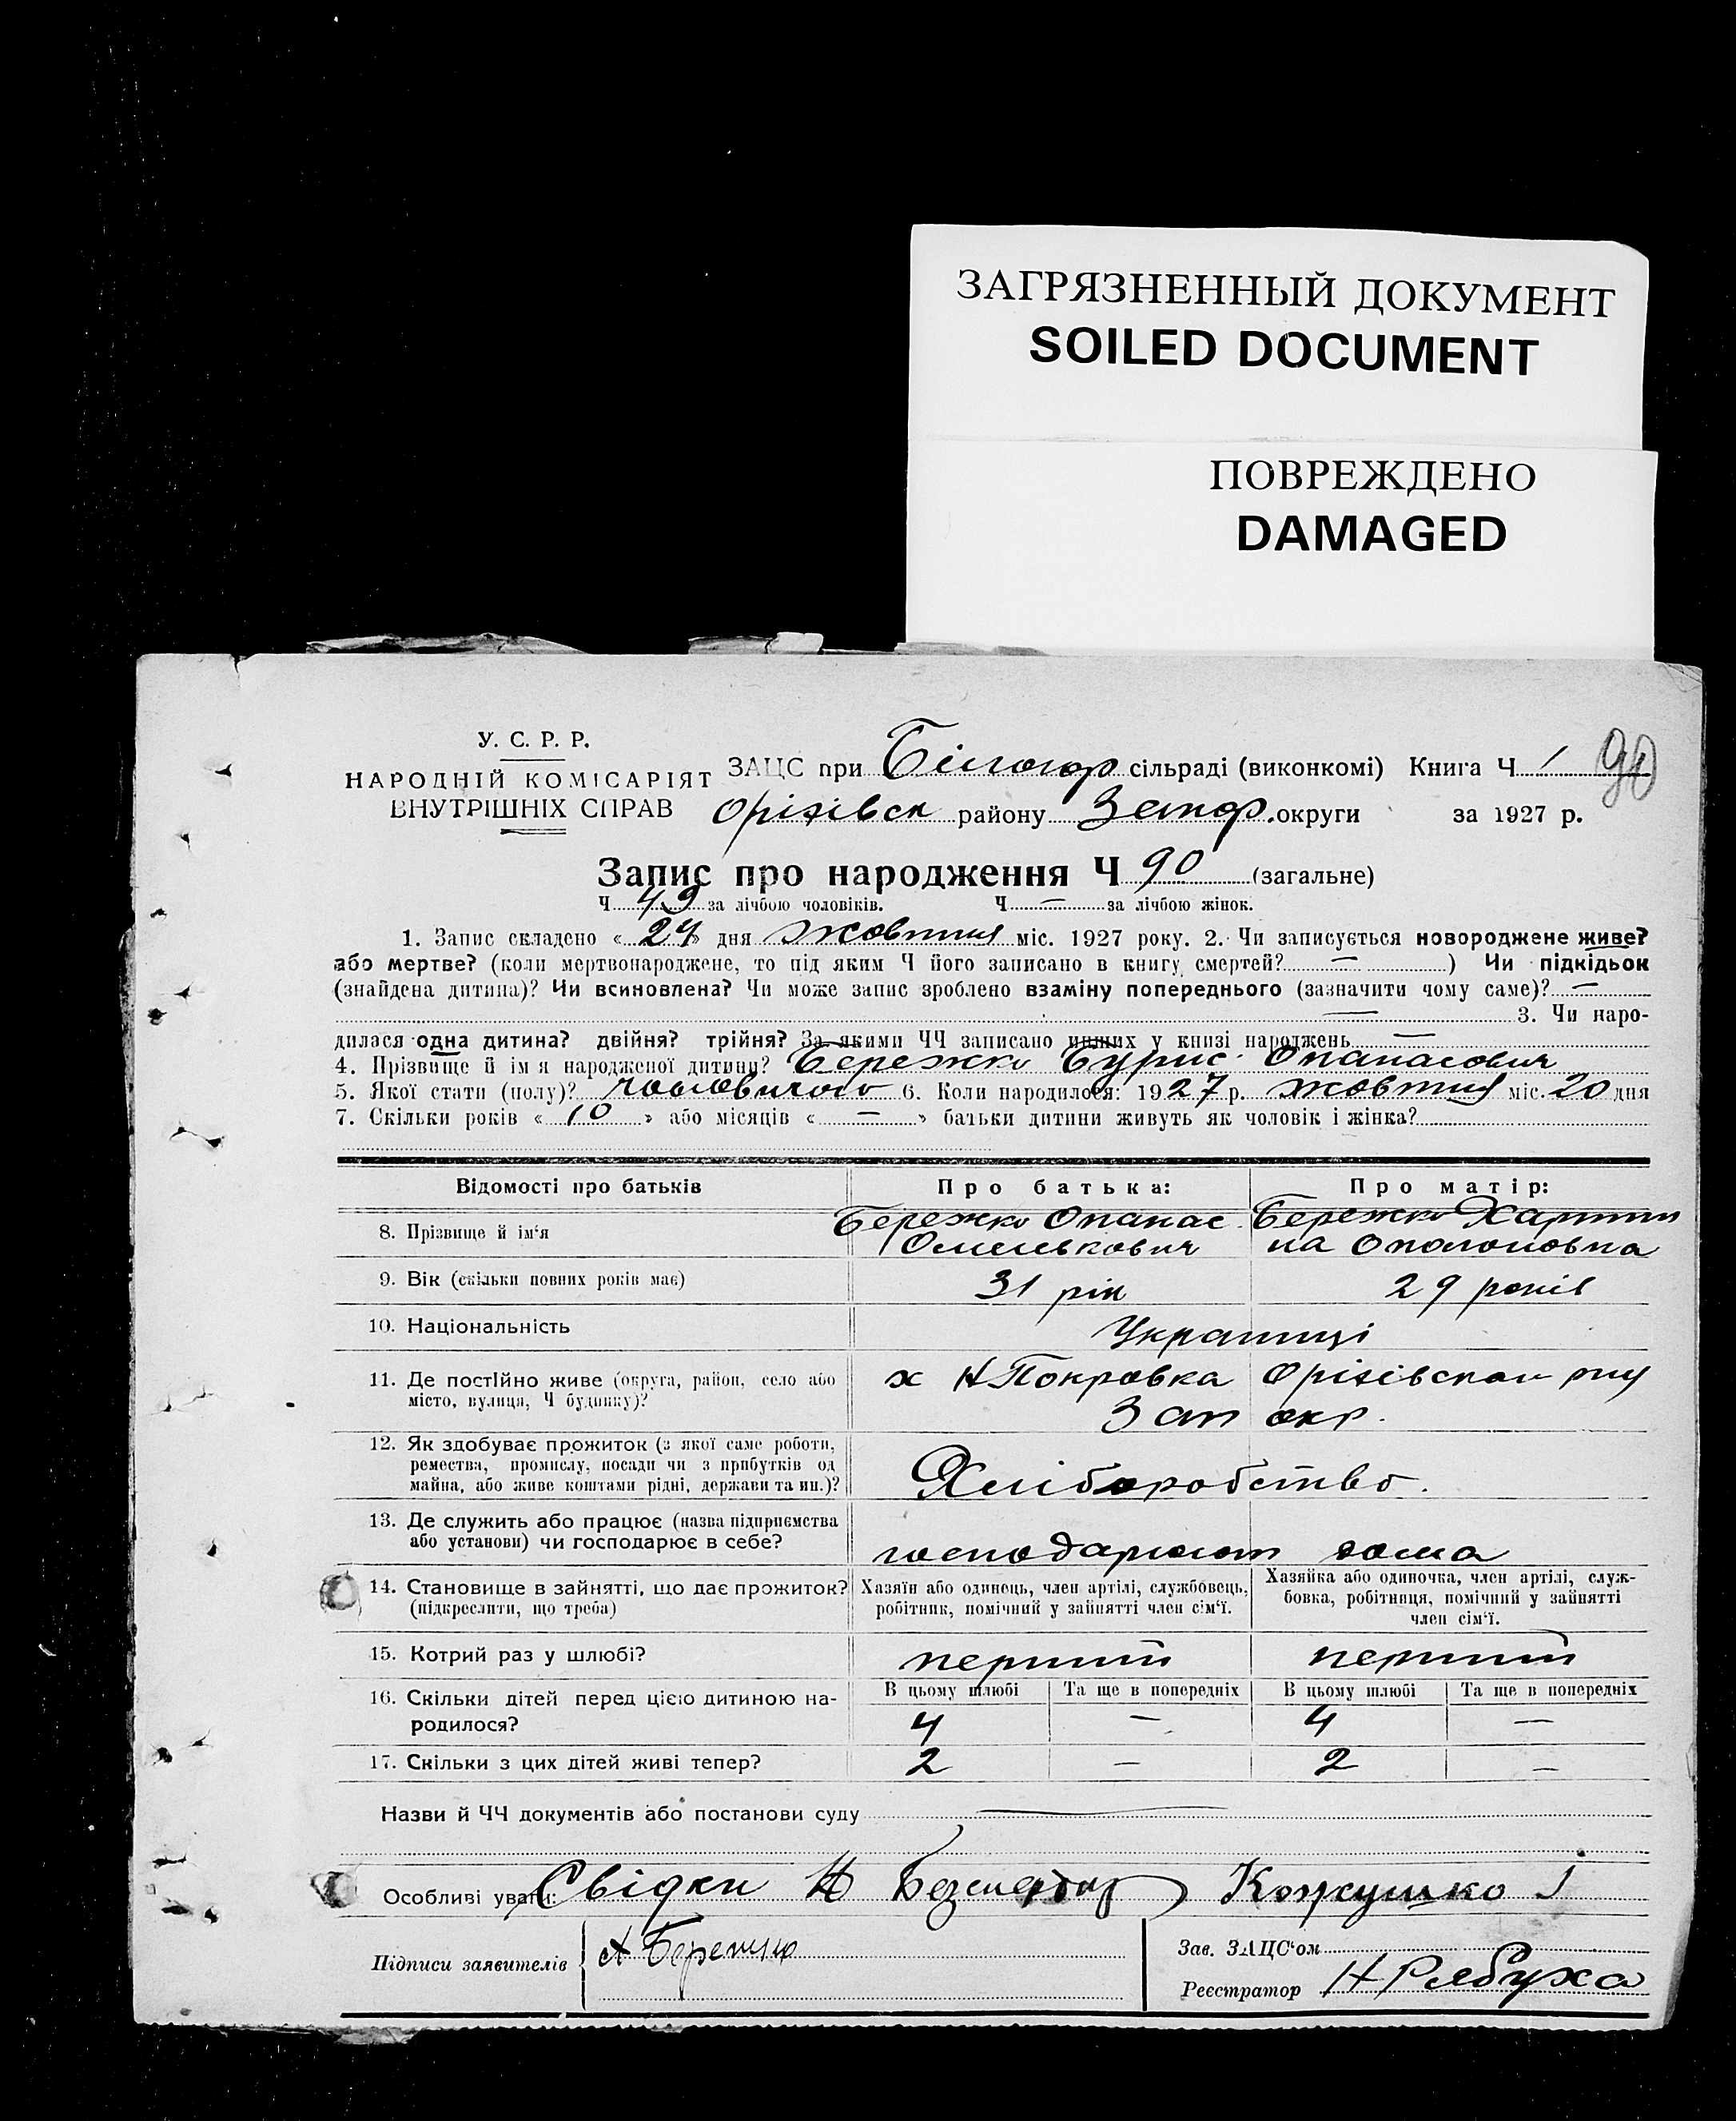 ЗАГРЯЗНЕННЫЙ ДОКУМЕНТ
SOILED DOCUMENT
ПОВРЕЖДЕНО
DAMAGED
У. С. Р. Р.
НАРОДНІЙ КОМІСАРІЯТ
ВНУТРІШНІХ СПРАВ
ЗАЦС при Білогор сільраді (виконкомі) Книга Ч 1 90
Орівск району Запор. округи за 1927 р.
Запис про народження Ч 90 (загальне)
Ч 49 за лічбою чоловіків. Ч — за лічбою жінок.
1. Запис складено « 24 » дня жовтня міс. 1927 року. 2. Чи записується новороджене живе?
або мертве? (коли мертвонароджене, то під яким Ч його записано в книгу смертей? — ) Чи підкідьок
(знайдена дитина)? Чи всиновлена? Чи може запис зроблено взаміну попереднього (зазначити чому саме)? —
— 3. Чи наро-
дилася одна дитина? двійня? трійня? За якими ЧЧ записано инших у книзі народжень —
4. Прізвище й ім я народженої дитини? Бережко Бурис Опанасович
5. Якої стати (полу)? чоловичого 6. Коли народилося: 1927 р. жовтня міс. 20 дня
7. Скільки років « 10 » або місяців « — » батьки дитини живуть як чоловік і жінка?
Відомості про батьків Про батька: Про матір:
8. Прізвище й ім‘я Бережко Опанас Бережко Харити
Омелькович на Ополоновна
9. Вік (скільки повних років має) 31 рік 29 років
10. Національність Українці
11. Де постійно живе (округа, район, село або х Н Покровка Орізівскои рну
місто, вулиця, Ч будинку)? Зап окр.
12. Як здобуває прожиток (з якої саме роботи,
ремества, промислу, посади чи з прибутків од
майна, або живе коштами рідні, держави та ин.)? Хліборобство.
13. Де служить або працює (назва підприємства
або установи) чи господарює в себе? господарюют дома
14. Становище в зайнятті, що дає прожиток? Хазяїн або одинець, член артілі, службовець, Хазяйка або одиночка, член артілі, служ-
(підкреслити, що треба) робітник, помічний у зайнятті член сім‘ї. бовка, робітниця, помічний у зайнятті
член сім‘ї.
15. Котрий раз у шлюбі? перший перший
16. Скільки дітей перед цією дитиною на- В цьому шлюбі Та ще в попередніх В цьому шлюбі Та ще в попередніх
родилося? 4 — 4 —
17. Скільки з цих дітей живі тепер? 2 — 2 —
Назви й ЧЧ документів або постанови суду —
Особливі уваги: Свідки Кожушко І
Підписи заявителів А Бережко
Зав. ЗАЦС‘ом
Реєстратор Н Рябуха